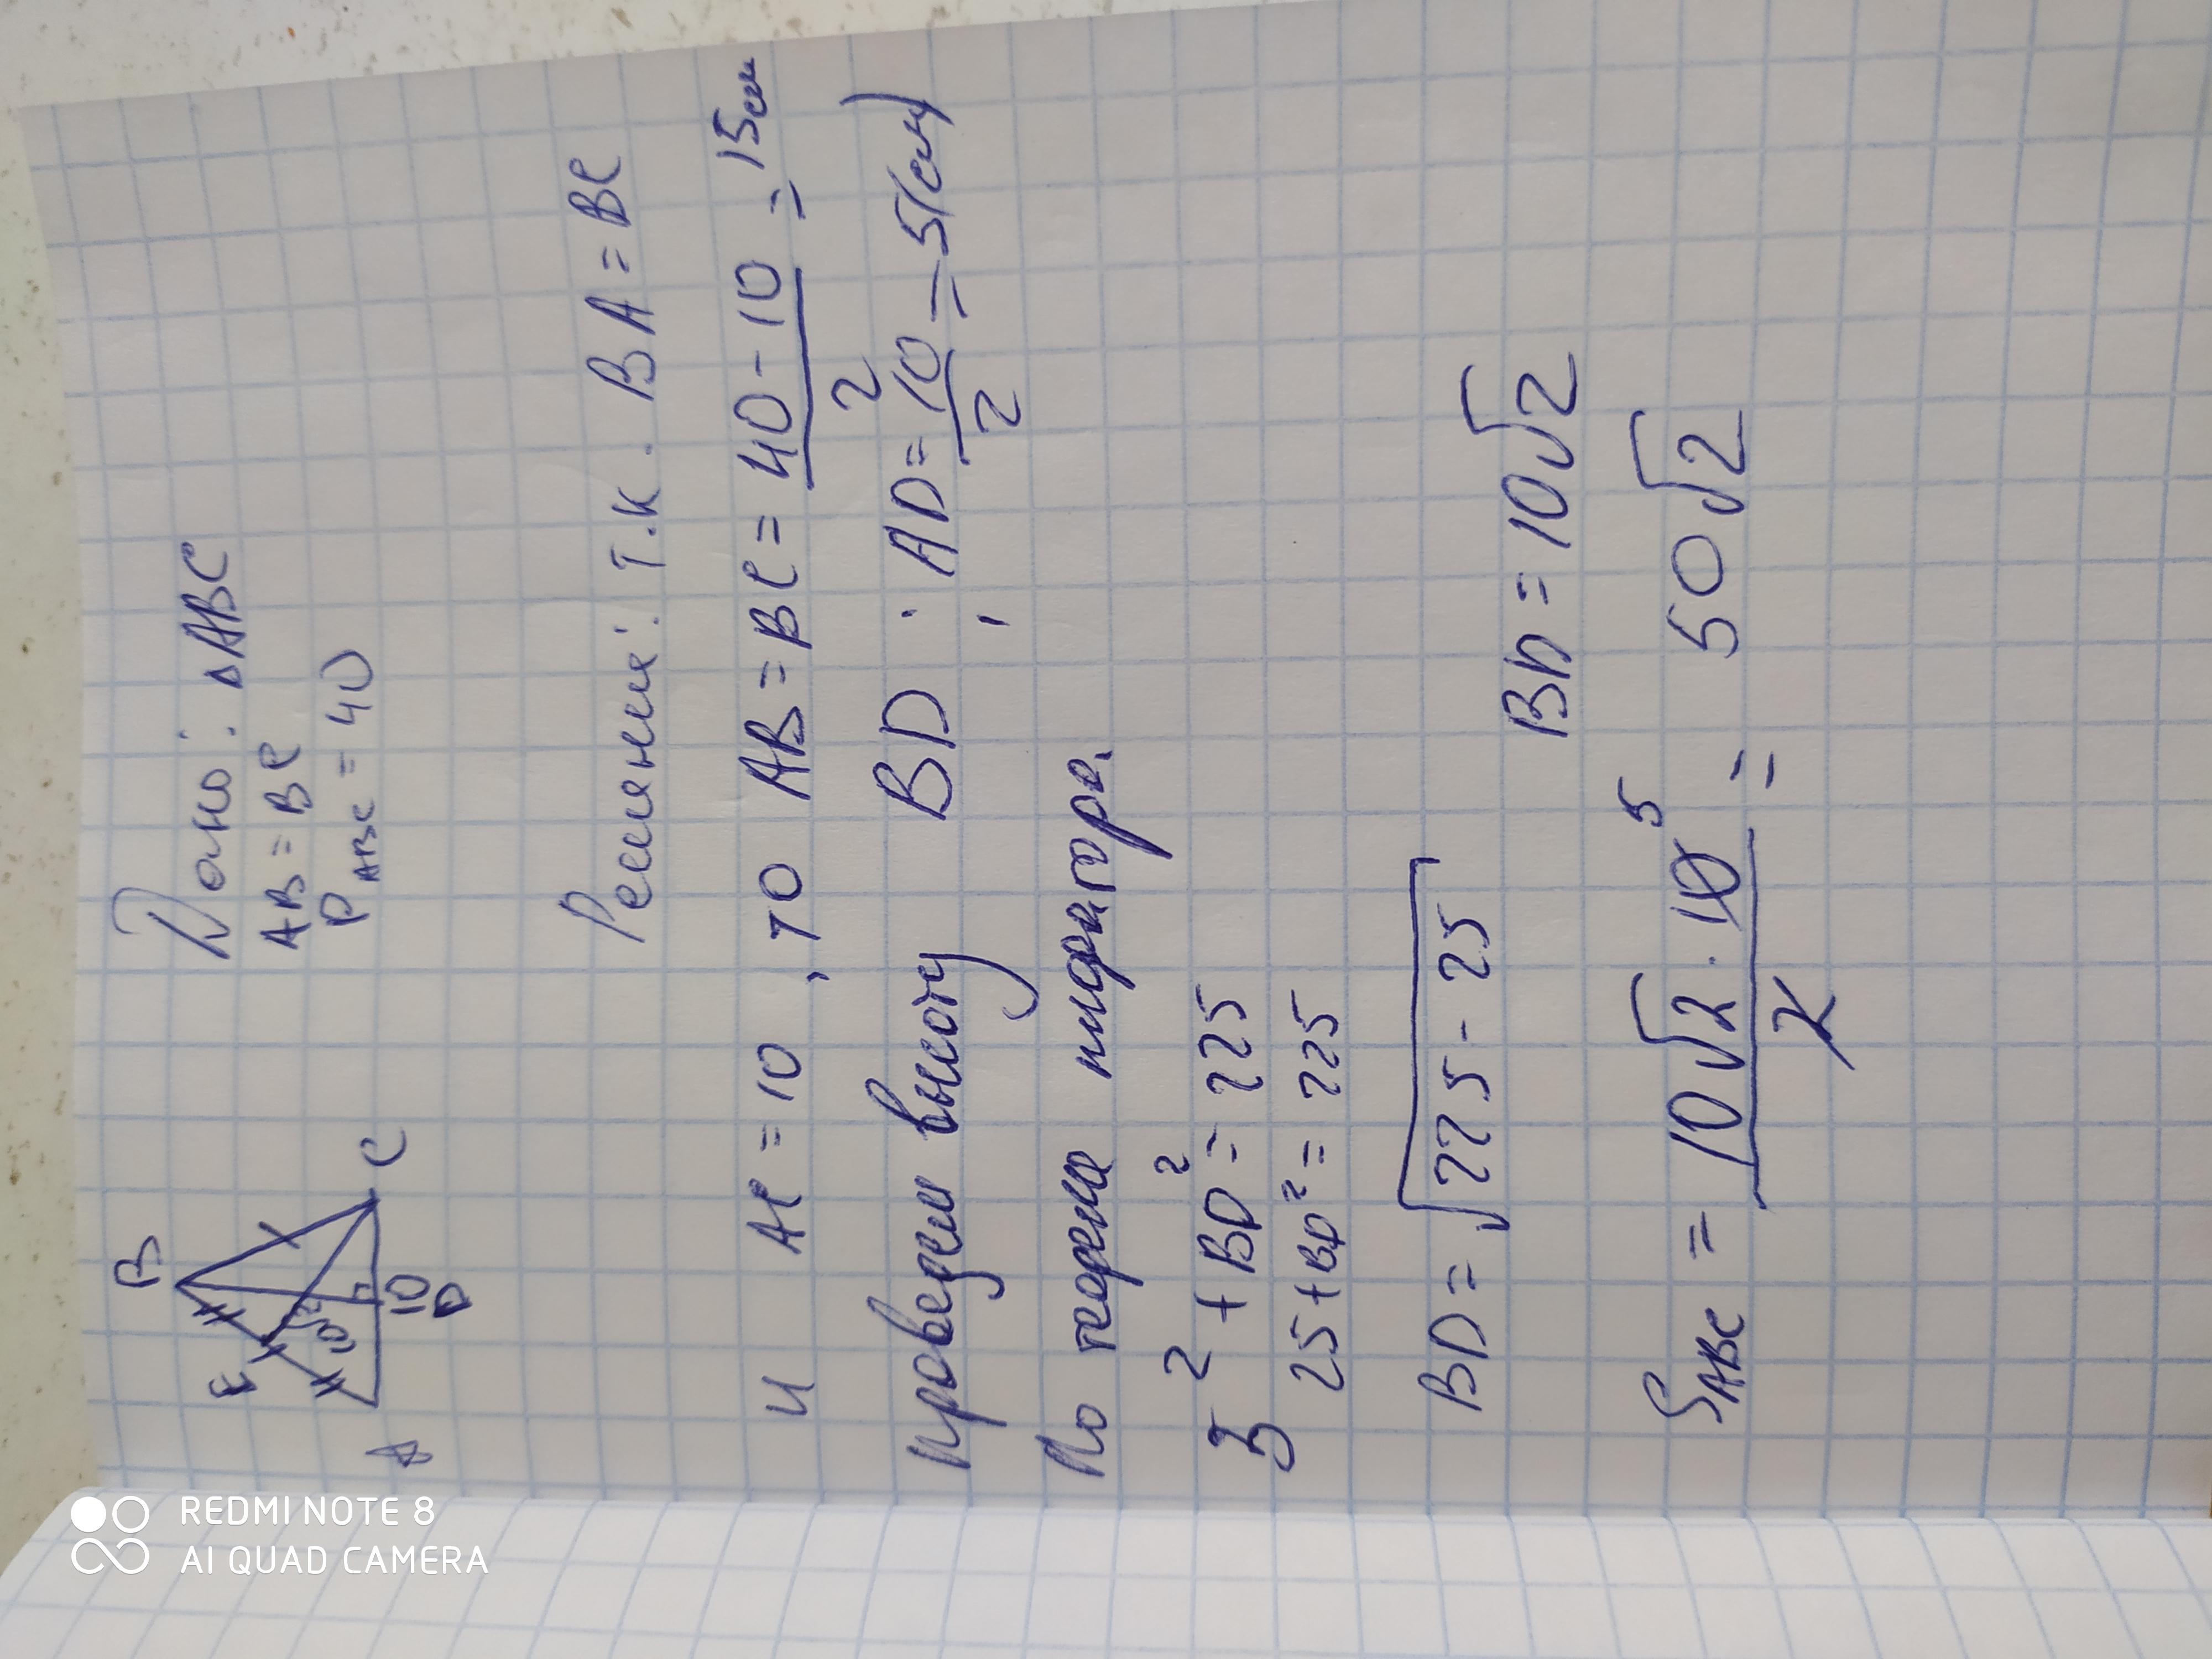 Дано: ΔABC
AB = BC
P ABC = 40
B
E
10
A
10
D
C
Решение: Т.к. BA = BC
и AC = 10, то AB = BC = (40 - 10)/2 = 15см
Проведем высоту BD; AD = 10/2 = 5(см)
По теореме пифагора.
5² + BD² = 225
25 + BD² = 225
BD = √(225 - 25)
BD = 10√2
S ABC = (10√2 · 10)/2 = 50√2
5
REDMI NOTE 8
AI QUAD CAMERA